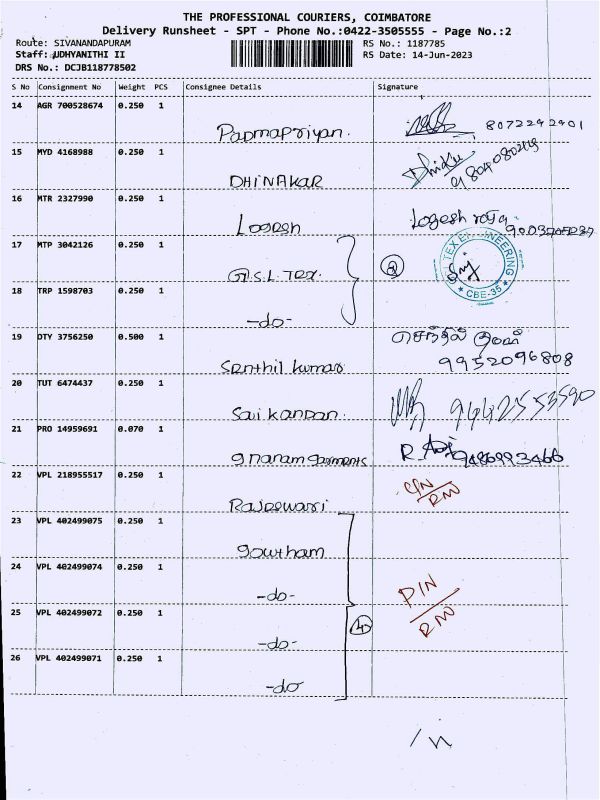 THE PROFESSIONAL COURIERS, COIMBATORE
Delivery Runsheet - SPT - Phone No.:0422-3505555 - Page No.:2
Route: SIVANANDAPURAM
Staff: UDHYANITHI II
DRS No.: DCJB118778502
RS No.: 1187785
RS Date: 14-Jun-2023
S No Consignment No Weight PCS Consignee Details Signature
14 AGR 700528674 0.250 1
Padmapriyan. 8072242401
15 MYD 4168988 0.250 1
DHINAKAR
16 MTR 2327990 0.250 1
Logesh Logesh
17 MTP 3042126 0.250 1
G.S.L. Tex. 2
CBE-35
18 TRP 1598703 0.250 1
-do-
19 DTY 3756250 0.500 1
Senthil kumar செந்தில் குமார் 9952096808
20 TUT 6474437 0.250 1
Sai kannan. 9442553590
21 PRO 14959691 0.070 1
gnanam garments 9486993466
22 VPL 218955517 0.250 1
Rajeswari
23 VPL 402499075 0.250 1
gowtham
24 VPL 402499074 0.250 1
-do- PIN
25 VPL 402499072 0.250 1
-do- 4
26 VPL 402499071 0.250 1
-do